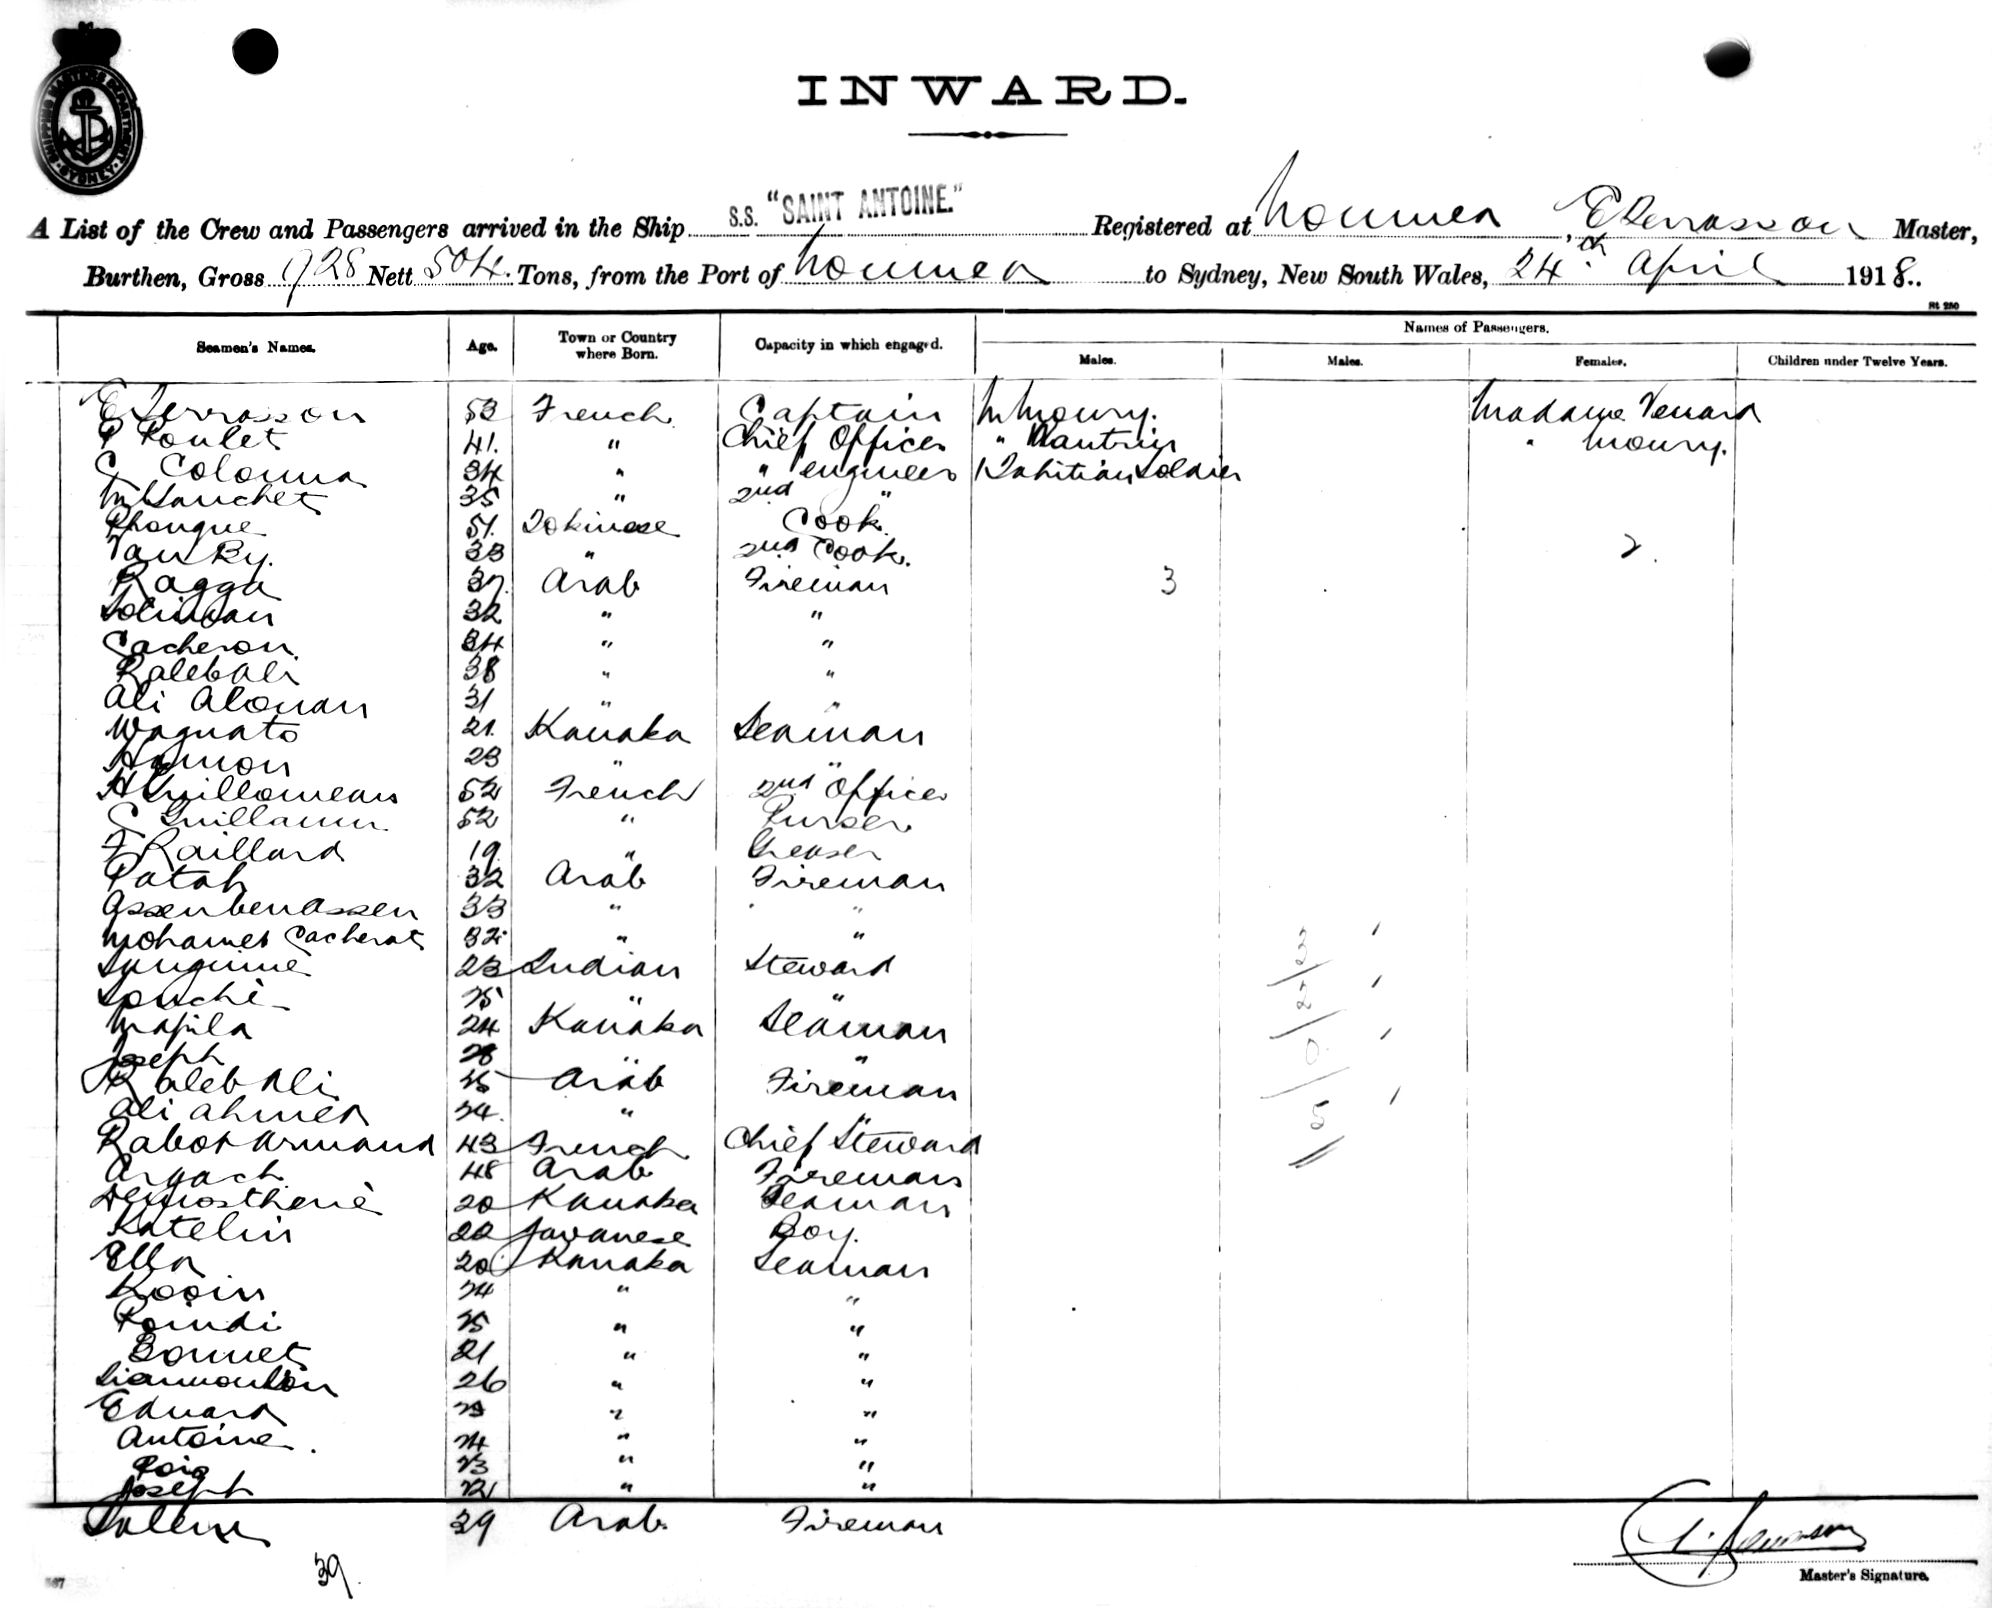 SHIPPING MASTERS DEPARTMENT SYDNEY
INWARD.
A List of the Crew and Passengers arrived in the Ship S.S. "SAINT ANTOINE." Registered at Noumea, E Terrasson Master,
Burthen, Gross 928 Nett 504. Tons, from the Port of Noumea to Sydney, New South Wales, 24th April 1918.
St 250
Names of Passengers.
Seamen's Names. Age. Town or Country where Born. Capacity in which engaged. Males. Males. Females. Children under Twelve Years.
E Terrasson 53 French Captain M Moury. Madame Venard
P Poulet 41. " Chief Officer " " Moury.
C Colonna 34 " " engineer 1 Tahitian Soldier
M Hanchet 35 " 2nd "
51. Tokinese Cook.
Van Ky. 33 " 2nd Cook. 2.
Ragga 37. Arab Fireman 3
Soliman 32 " "
Cacheron. 34 " "
Kaleb Ali 38 " "
Ali Alouan 31 " "
Waguato 21. Kanaka Seaman
Hamon 23 " "
H Guillomeau 52 French 2nd Officer
C Guillaum 52 " Purser
F Raillard 19. " Greaser
Patah 32 Arab Fireman
Assenbenassen 33 " "
Mohamed Cacherat 32 " "
Sanguime 23 Indian Steward
Souchè 25 " "
Mapila 24 Kanaka Seaman
Joseph 28 " "
Kaleb Ali 25 Arab Fireman
Ali Ahmed 24. " "
Rabot Armand 43 French Chief Steward
Argach 48 Arab Fireman
Demosthenè 20 Kanaka Seaman
Katelin 22 Javanese Boy.
Ella 20 Kanaka Seaman
Kooin 24 " "
Poindi 25 " "
Bonnet 21 " "
26 " "
Eduard 23 " "
Antoine. 24 " "
23 " "
Joseph 21 " "
Salem 39 Arab Fireman
3/2/0/5
39.
Master's Signature.